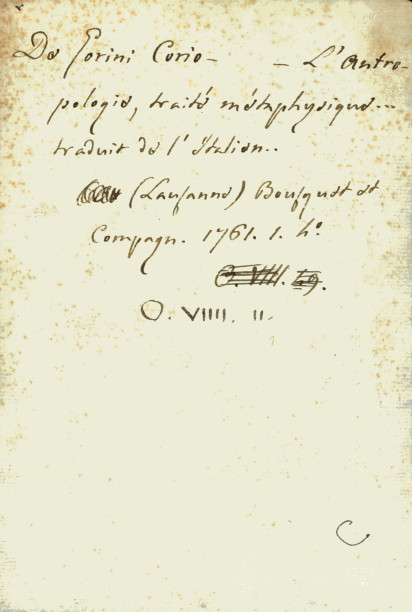 De Gorini Corio — — L'Antro-
pologie, traité métaphysique...
traduit de l'Italien..
(Lausanne) Bousquet et
Compagn. 1761. 1. 4°.
O. VIIII. 59.
O. VIIII. 11.
C